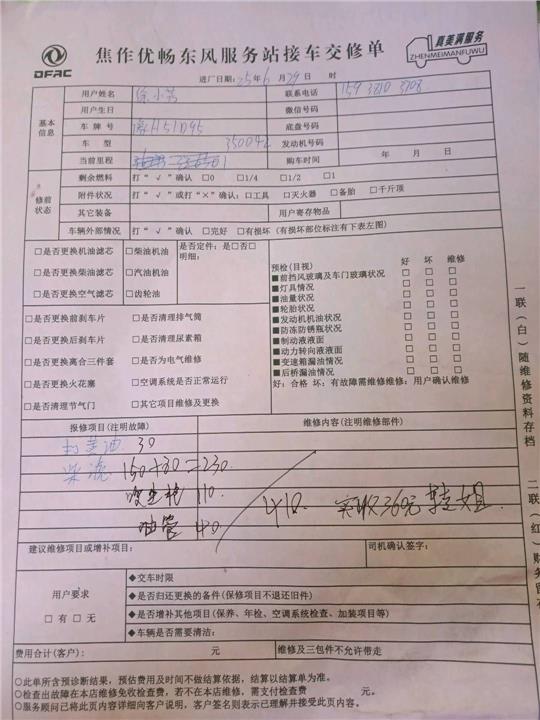 DFAC
焦作优畅东风服务站接车交修单
真美满服务
ZHENMEIMANFUWU
进厂日期：25年6月29日 时
基本信息
用户姓名 徐小芳 联系电话 159 3910 3708
用户生日 微信号码
车牌号 豫H51D95 底盘号码
车型 发动机号码
当前里程 购车时间 年 月 日
修前状态
剩余燃料 打“√”确认 □0 □1/4 □1/2 □1
附件状况 打“√”或打“×”确认：□工具 □灭火器 □备胎 □千斤顶
其它装备 用户寄存物品
车辆外部情况 打“√”确认 □完好 □有损坏（有损坏部位标注有下表左图）
□是否更换机油滤芯 □柴油机油 是否定件：是□否□
明细：
□是否更换柴油滤芯 □汽油机油
□是否更换空气滤芯 □齿轮油
□是否更换前刹车片 □是否清理排气筒
□是否更换后刹车片 □是否清理尿素箱
□是否更换离合三件套 □是否为电气维修
□是否更换火花塞 □空调系统是否正常运行
□是否清理节气门 □其它项目维修及更换
预检（目视） 好 坏 维修
■前挡风玻璃及车门玻璃状况 □ □ □
■灯具情况 □ □ □
■油量状况 □ □ □
■轮胎状况 □ □ □
■发动机机油状况 □ □ □
■防冻防锈瓶状况 □ □ □
■制动液液面 □ □ □
■动力转向液液面 □ □ □
■变速箱漏油情况 □ □ □
■后桥漏油情况 □ □ □
好：合格 坏：有故障需维修维修：用户确认维修
报修项目（注明故障） 维修内容（注明维修部件）
打黄油 30
柴滤 150+80=230.
110.
油管 40
410. 实收360元
建议维修项目或增补项目： 司机确认签字：
用户要求
□有□无
◆交车时限
◆是否归还更换的备件（保修项目不退还旧件）
◆是否增补其他项目（保养、年检、空调系统检查、加装项目等）
◆车辆是否需要清洁：
费用合计（客户）： 元 维修及三包件不允许带走
○此单所含预诊断结果，预估费用及时间不做结算依据，结算以结算单为准。
○检查出故障在本店维修免收检查费，若不在本店维修，需支付检查费 元。
○服务顾问已将此页内容详细向客户说明，客户签名则表示已理解并接受此页内容。
一联（白）随维修资料存档
二联（红）